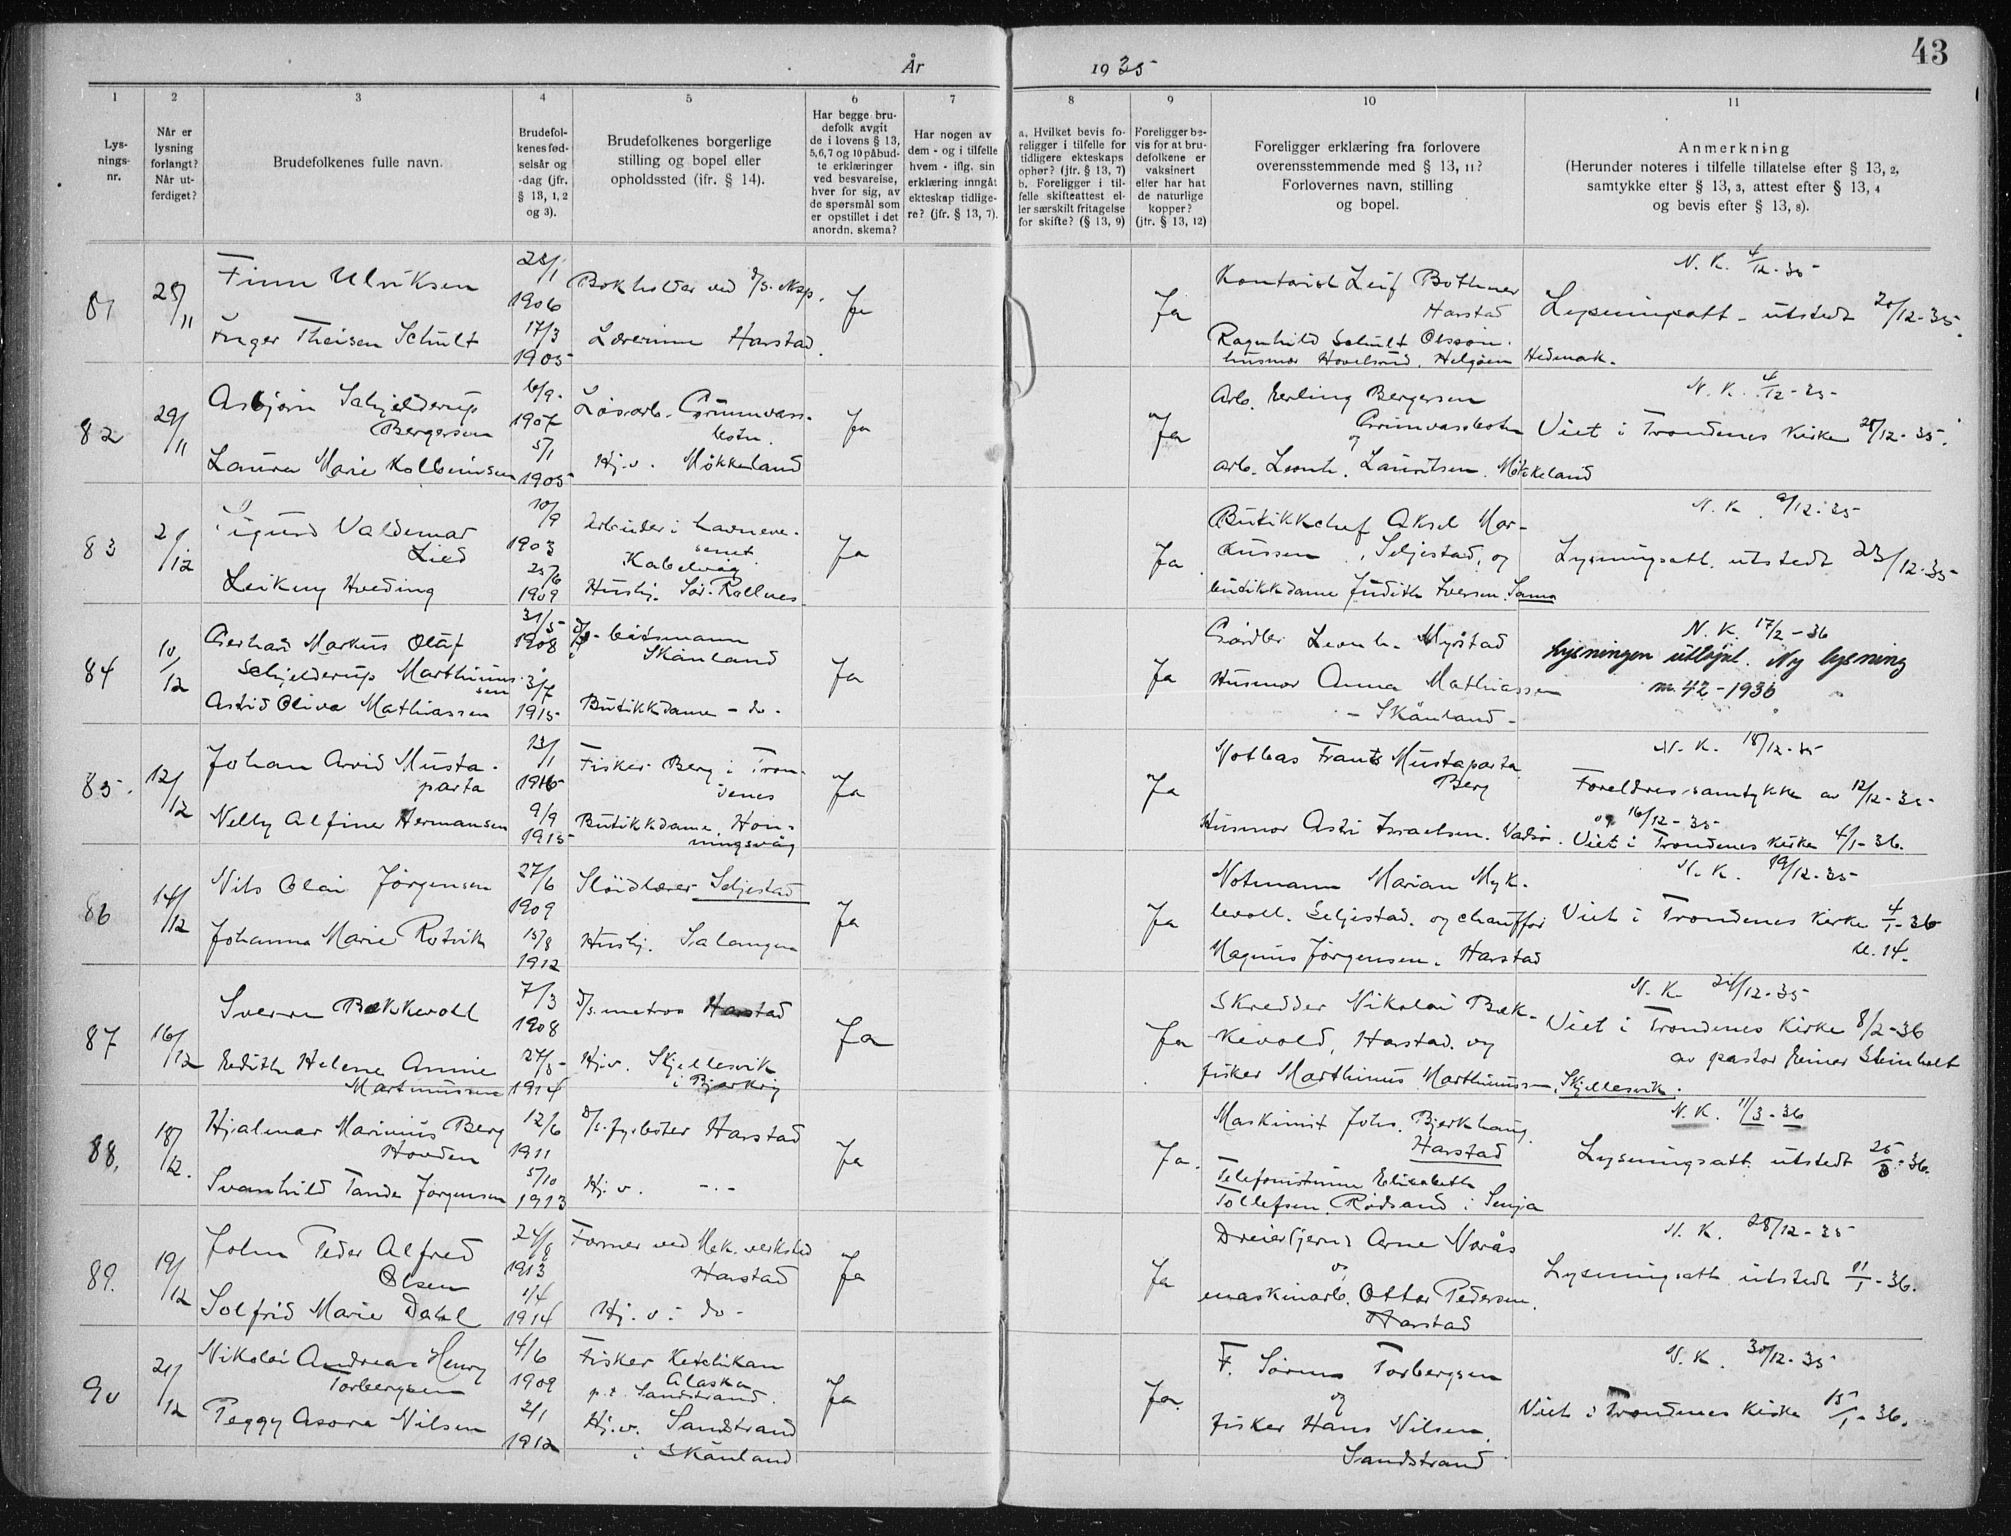 43
År 1935
1 2 3 4 5 6 7 8 9 10 11
Lys-
nings-
nr.
Når er
lysning
forlangt?
Når ut-
ferdiget?
Brudefolkenes fulle navn.
Brudefol-
kenes fød-
selsår og
-dag (jfr.
§ 13, 1, 2
og 3).
Brudefolkenes borgerlige
stilling og bopel eller
opholdssted (jfr. § 14).
Har begge bru-
defolk avgit
de i lovens § 13,
5, 6, 7 og 10 påbud-
te erklæringer
ved besvarelse,
hver for sig, av
de spørsmål som
er opstillet i det
anordn. skema?
Har nogen av
dem - og i tilfelle
hvem - iflg. sin
erklæring inngåt
ekteskap tidlige-
re? (jfr. § 13, 7).
a. Hvilket bevis fo-
religger i tilfelle for
tidligere ekteskaps
ophør? (jfr. § 13, 7)
b. Foreligger i til-
felle skifteattest el-
ler særskilt fritagelse
for skifte? (§ 13, 9)
Foreligger be-
vis for at bru-
defolkene er
vaksinert
eller har hat
de naturlige
kopper?
(jfr. § 13, 12)
Foreligger erklæring fra forlovere
overensstemmende med § 13, 11?
Forlovernes navn, stilling
og bopel.
Anmerkning
(Herunder noteres i tilfelle tillatelse efter § 13, 2,
samtykke efter § 13, 3, attest efter § 13, 4
og bevis efter § 13, 8).
81
Finn Ulriksen
1906
Bokholder ved
Ja
Inger Theisen Schult
17/3
1905
Lærerinne Harstad
Ja
Kontorist Leif Bothner
Harstad
Ragnhild Schult Olsson
husmor Hovelsrud, Helgøen Hedmark.
N. K. 4/12-35
Lysningsatt. utstedt 20/12-35.
82
29/11
Asbjørn Schjelderup
Bergersen
6/9.
1907
Løsarb. Grunnvass-
botn.
Ja
Laura Marie Kolbeinsen
5/1
1905
Hj.v. Møkkeland
Ja
Arb. Erling Bergersen
Grunvassbotn
og
arb. Leonh. Lauritsen. Møkkeland
N. K. 4/12-35
Viet i Trondenes Kirke 28/12-35.
83
2/12
Sigurd Valdemar
Lied
10/9
1903
Arbeider i havneve-
senet
Kabelvåg
Ja
Leikny Hveding
25/6
1909
Hushj. Sør-Rollnes
Ja
Butikkchef Aksel Mar-
kussen, Seljestad, og
butikkdame Judith Iversen. Sama
N. K. 9/12-35
Lysningsatt. utstedt 23/12-35
84
10/12
Gerhard Markus Olaf
Schjelderup Marthinus-
sen
31/5
1908
båtsmann
Skånland
Ja
Astrid Oliva Mathiassen
3/7
1915
Butikkdame - do -
Ja
Leonh. Myrstad
Husmor Anna Mathiassen
- Skånland -
N. K. 17/2-36
Lysningen utløpt. Ny lysning
nr. 42-1936
85.
12/12
Johan Arvid Musta-
parta
13/1
Fisker Berg i Tron-
denes
Ja
Nelly Alfine Hermansen
9/9
1915
Butikkdame. Hon-
ningsvåg
Ja
Notbas Frants Mustaparta
Berg
Husmor Astri Israelsen. Vadsø.
N. K. 18/12-35
Foreldres samtykke av 12/12-35
og 16/12-35
Viet i Trondenes Kirke 4/1-36.
86
14/12
Nils Olai Jørgensen
27/6
1909
Sløidlærer Seljestad
Ja
Johanna Marie Rotvik
15/8
1912
Hushj. Salangen
Ja
Notmann Marian Myk-
levoll. Seljestad. og chauffør
Magnus Jørgensen. Harstad
N. K. 19/12-35
Viet i Trondenes Kirke 4/1-36
kl. 14.
87
16/12
Sverre Bækkevold
7/3
1908
d/s. matros Harstad
Ja
Edith Helene Annie
Martinussen
1914
Hj.v. Skjellesvik
i Bjarkøy
Ja
Skredder Nikolai Bæk-
kevold, Harstad. og
fisker Marthinus Marthinussen, Skjellesvik.
N. K. 21/12-35
Viet i Trondenes Kirke 8/2-36
av pastor Einar Steinholt
88.
18/12.
Hjalmar Marinius Berg
Hovden
12/6
1911
d/s. fyrbøter Harstad
Ja
Svanhild Tande Jørgensen
5/10
1913
Hj.v. -.-
Ja.
Maskinist Johs. Bjerkhaug.
Harstad
Telefonistinne Elisabeth
Tollefsen. Rødsand i Senja
N. K. 11/3-36
Lysningsatt. utstedt 25/3-36.
89.
19/12
John Peder Alfred
Olsen
24/8
1913
Former ved Mek. verksted
Harstad
Ja
Solfrid Marie Dahl
1/4
1914
Hj.v. - do -
Ja
Dreier (jern) Arne Norås
og
maskinarb. Ottar Pedersen.
Harstad
N. K. 28/12-35
Lysningsatt. utstedt 11/1-36.
90
21/12
Nikolai Andreas Henry
Torbergsen
4/6
1909
Fisker Ketchikan
Alaska
p.t. Sandstrand.
Ja
Peggy Asora Nilsen
2/1
1912
Hj.v. Sandstrand
i Skånland
Ja.
F. Søren Torbergsen
og
fisker Hans Nilsen.
Sandstrand
N. K. 30/12-35
Viet i Trondenes Kirke 15/1-36.